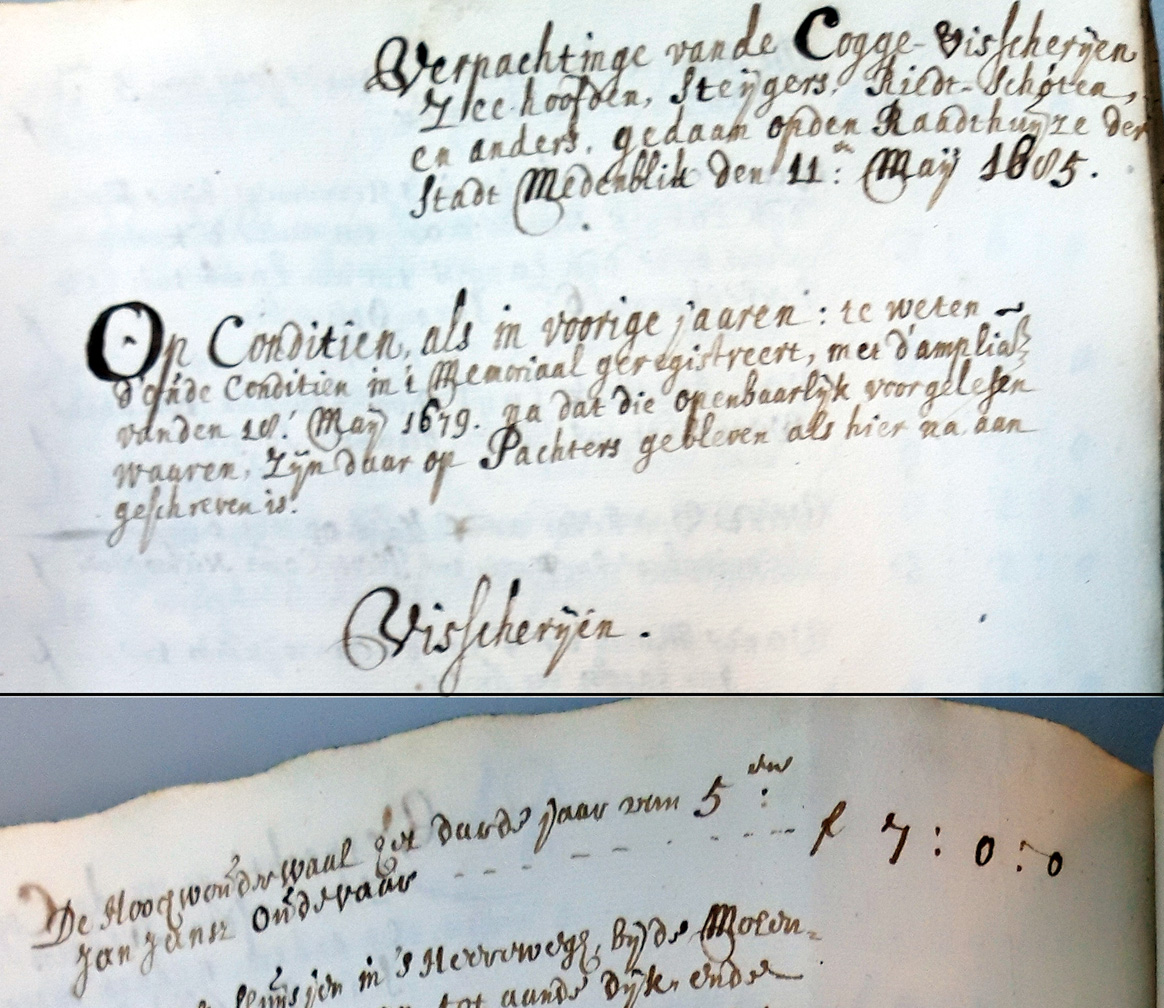 Verpachtinge vande Cogge-Visscherÿen
Zee-hoofden, Steÿgers, Riedt-Schoten,
en anders, gedaan opden Raadthuÿze der
Stadt Medenblik den 11:en Maÿ 1685.
Op Conditien, als in voorige jaaren: te weten
d'oude Conditien in't Memoriaal geregistreert, met d'ampliaß
vanden 18:' Maÿ 1679. na dat die openbaarlÿk voorgelesen
waaren, Zÿn daar op Pachters gebleven als hier na aan
geschreven is.
Visscherÿen.
De Hooqwouderwaal het darde jaar van 5:en
Jan Jansz Oudevaar - - - - - - - f 7:0:0
in 's Heerewegh, bÿ de Molen-
tot aande Dÿk ende